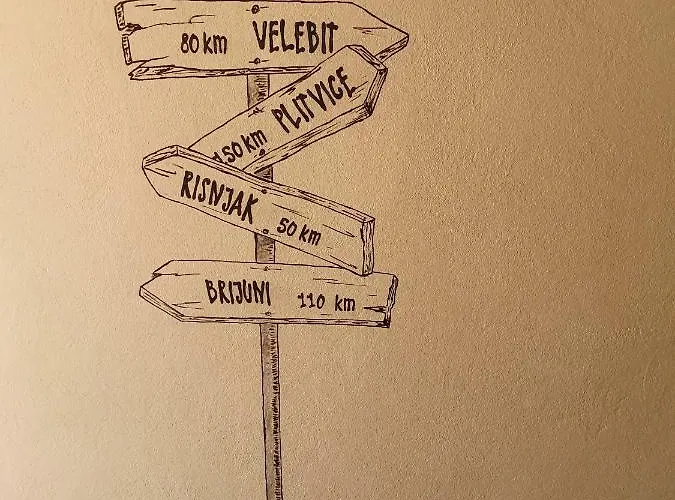 80 km VELEBIT
150 km PLITVICE
RISNJAK 50 km
BRIJUNI 110 km